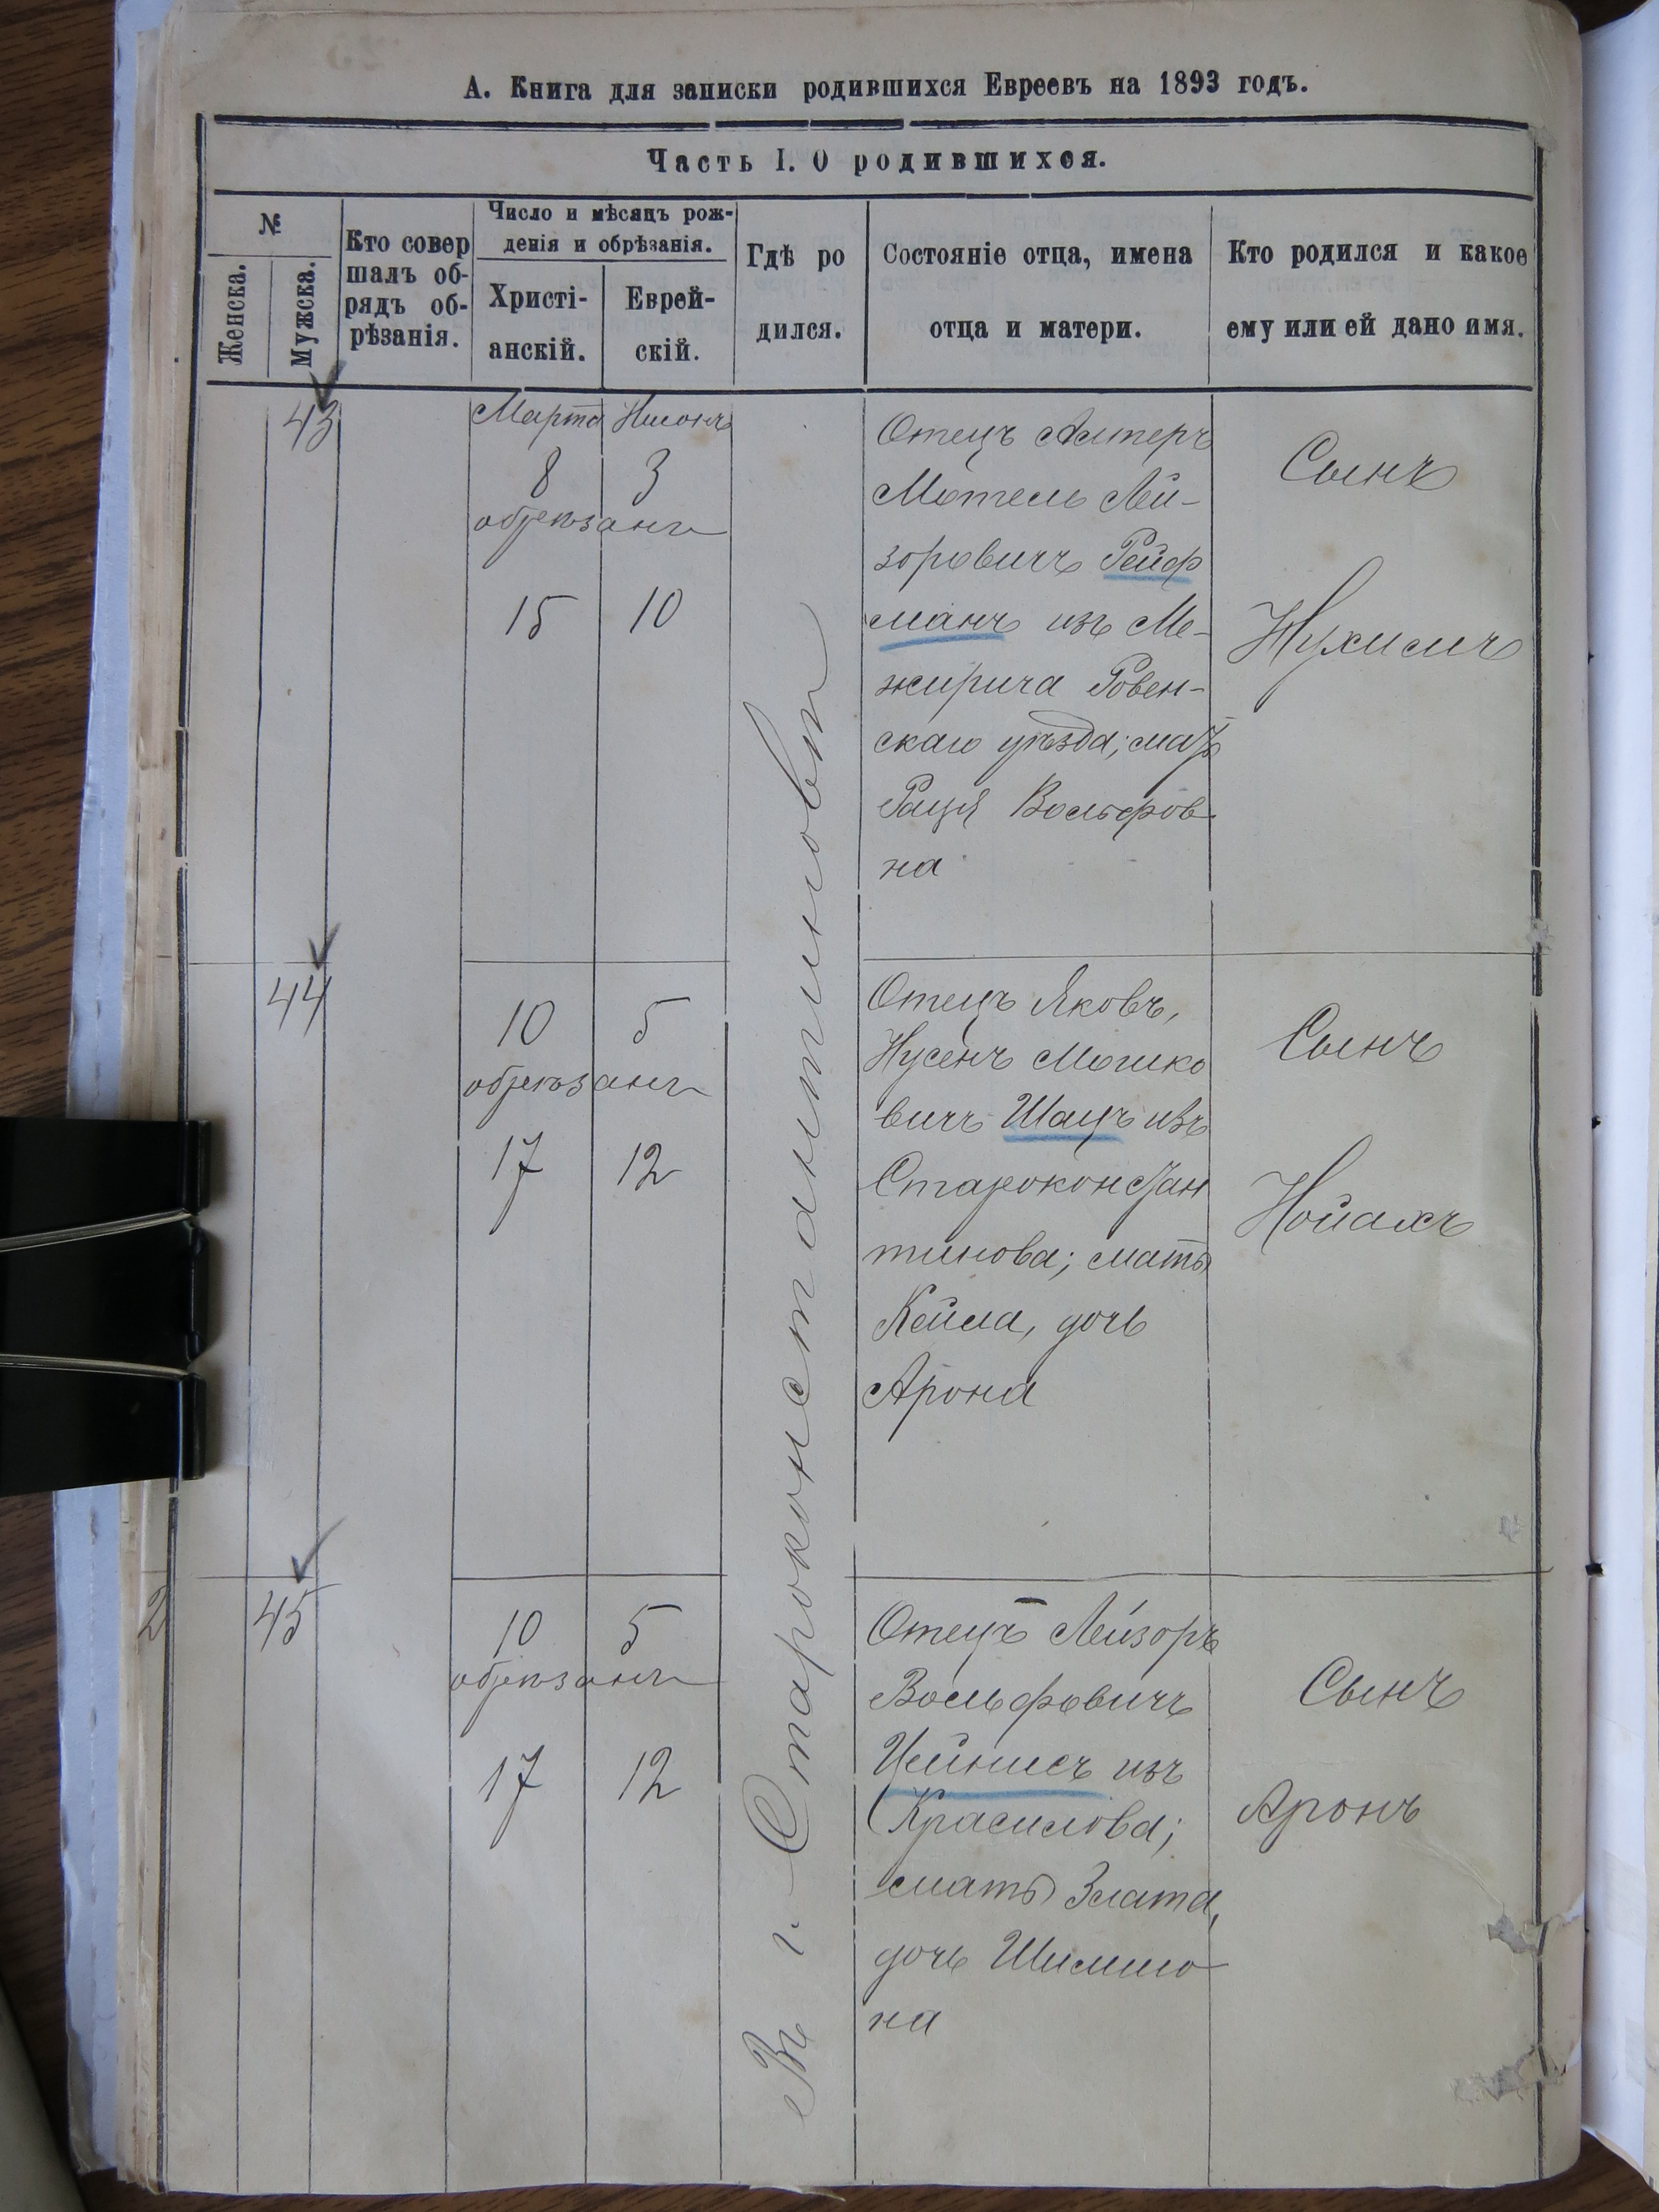 А. Книга для записки родившихся Евреевъ на 1893 годъ.
Часть I. О родившихся.
№
Женска.
Мужска.
Кто совер
шалъ об-
рядъ об-
рѣзанія.
Число и мѣсяцъ рож-
денія и обрѣзанія.
Христі-
анскій.
Еврей-
скій.
Гдѣ ро
дился.
Состояніе отца, имена
отца и матери.
Кто родился и какое
ему или ей дано имя.
43
Марта Нисонъ
8 3
обрѣзанъ
15 10
Отецъ Алтеръ
Мотель Лей-
зоровичъ Рейф
манъ изъ Ме-
жирича Ровен-
скаго уѣзда; мать
Рація Вольфов-
на
Сынъ
Нухимъ
44
10 5
обрѣзанъ
17 12
Отецъ Яковъ,
Нусенъ Мошко
вичъ Шацъ изъ
Староконстан
тинова; мать
Кейла, дочь
Арона
Сынъ
Нойахъ
2
45
10 5
обрѣзанъ
17 12
Отецъ Лейзоръ
Вольфовичъ
Цейнисъ изъ
Красилова;
мать Злата,
дочь Шимшо
на
Сынъ
Аронъ
Въ г. Староконстантиновѣ